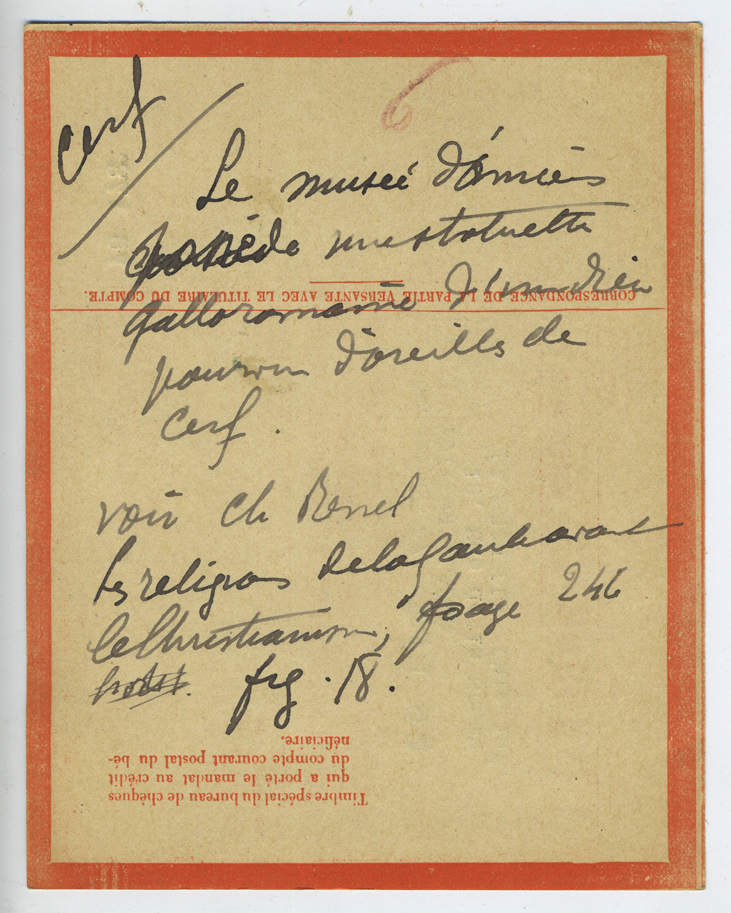 cerf
6
Le musée d'Amiens
possède une statuette
CORRESPONDANCE DE LA PARTIE VERSANTE AVEC LE TITULAIRE DU COMPTE.
galloromaine d'un dieu
pourvu d'oreilles de
cerf.
voir Ch Renel
les religions de la Gaule avant
le Christianisme, page 246
fig. 18.
Timbre spécial du bureau de chèques
qui a porté le mandat au crédit
du compte courant postal du bé-
néficiaire.